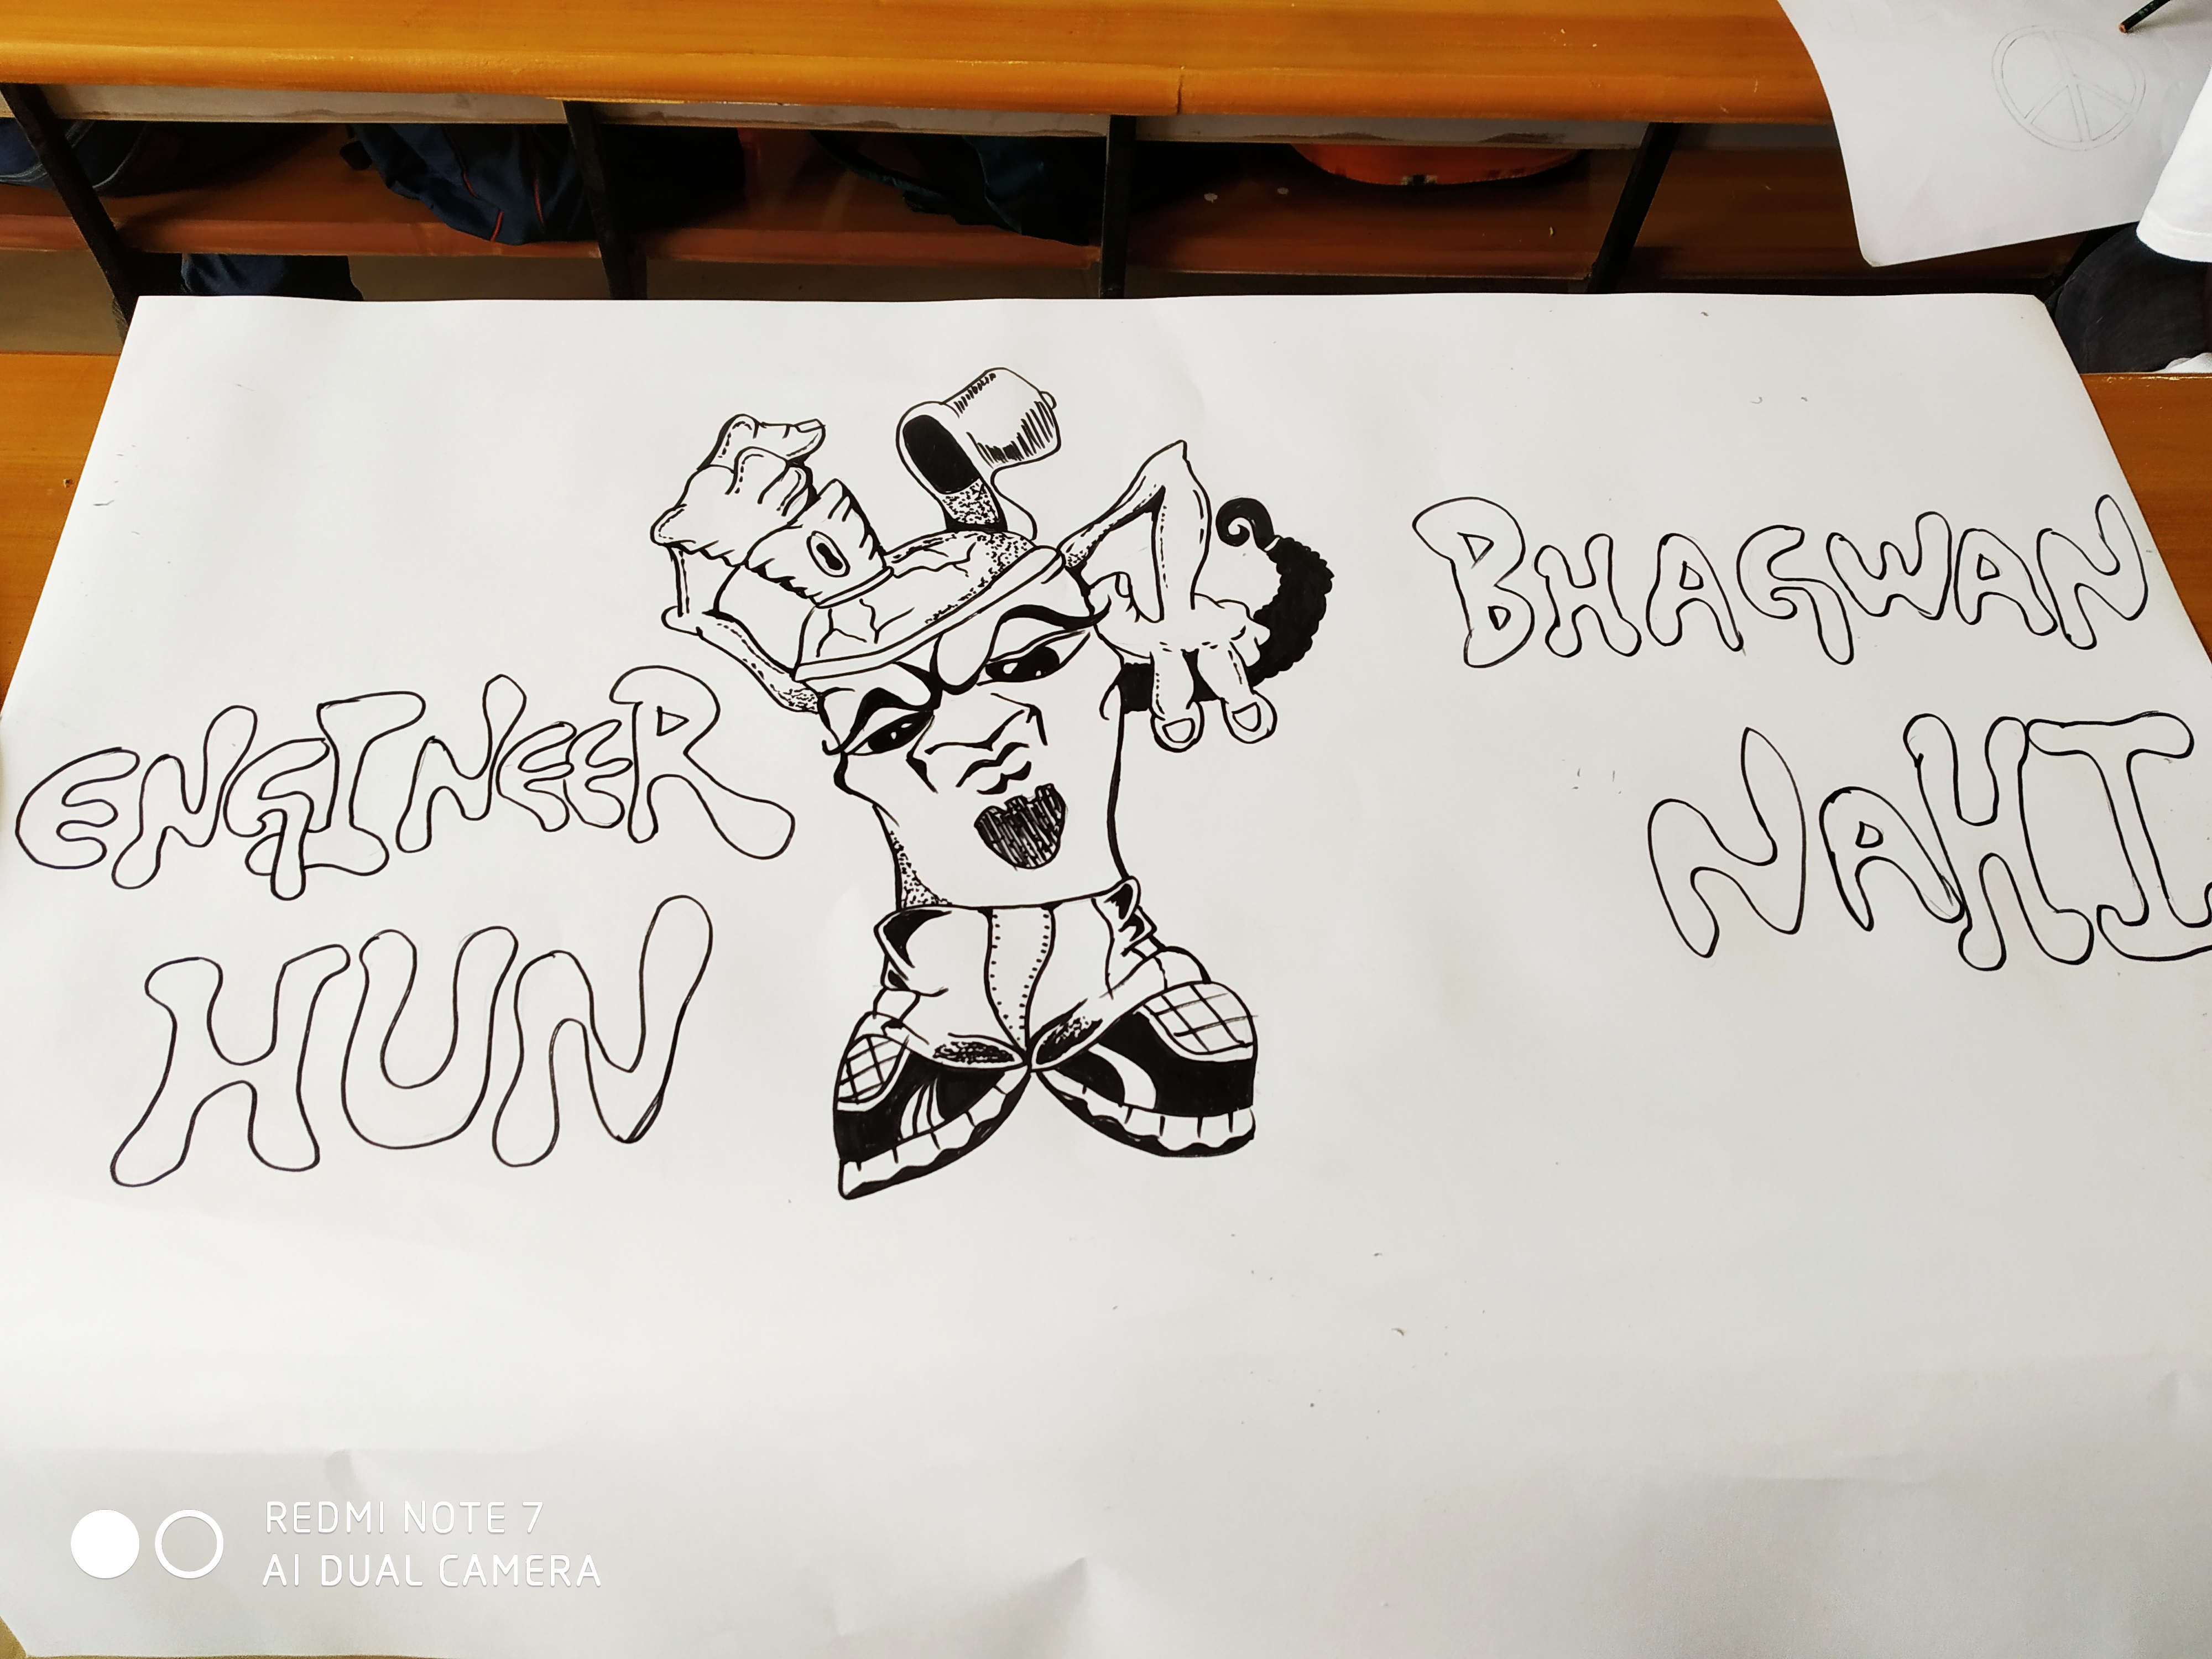 ENGINEER
HUN
BHAGWAN
NAHI
REDMI NOTE 7
AI DUAL CAMERA